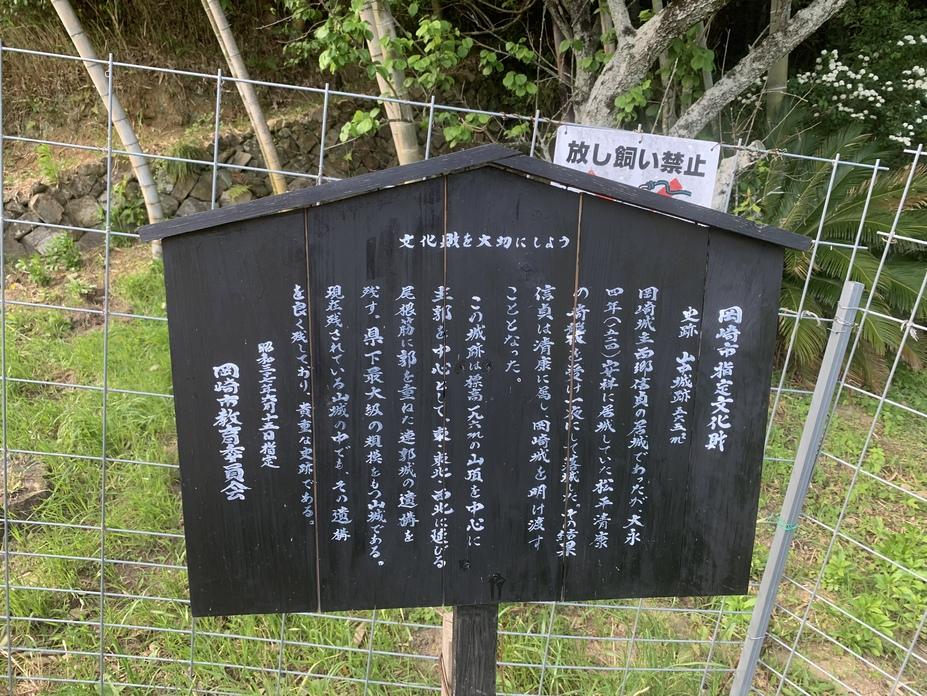 放し飼い禁止
文化財を大切にしよう
岡崎市指定文化財
史跡 山古城跡
岡崎城主西郷信貞の居城であったが、大永
四年(一五二四)安祥に居城していた松平清康
の奇襲を受け一夜にして落城した。その結果
信貞は清康に属し、岡崎城を明け渡す
こととなった。
この城跡は標高一九六mの山頂を中心に
主郭を中心として、東、東北、西北に延びる
尾根筋に郭を重ねた連郭城の遺構を
残す。県下最大級の規模をもつ山城である。
現在残されている山城の中でも、その遺構
を良く残しており、貴重な史跡である。
昭和三十六年六月十五日指定
岡崎市教育委員会